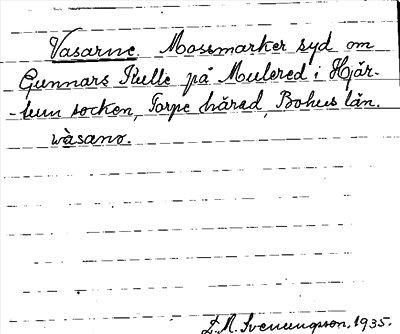 Vasarne. Mossmarker syd om
Gunnars Kulle på Mulered i Hjär-
-tum socken, Torpe härad, Bohus län.
wàsano.
L.M. Svenungsson, 1935.